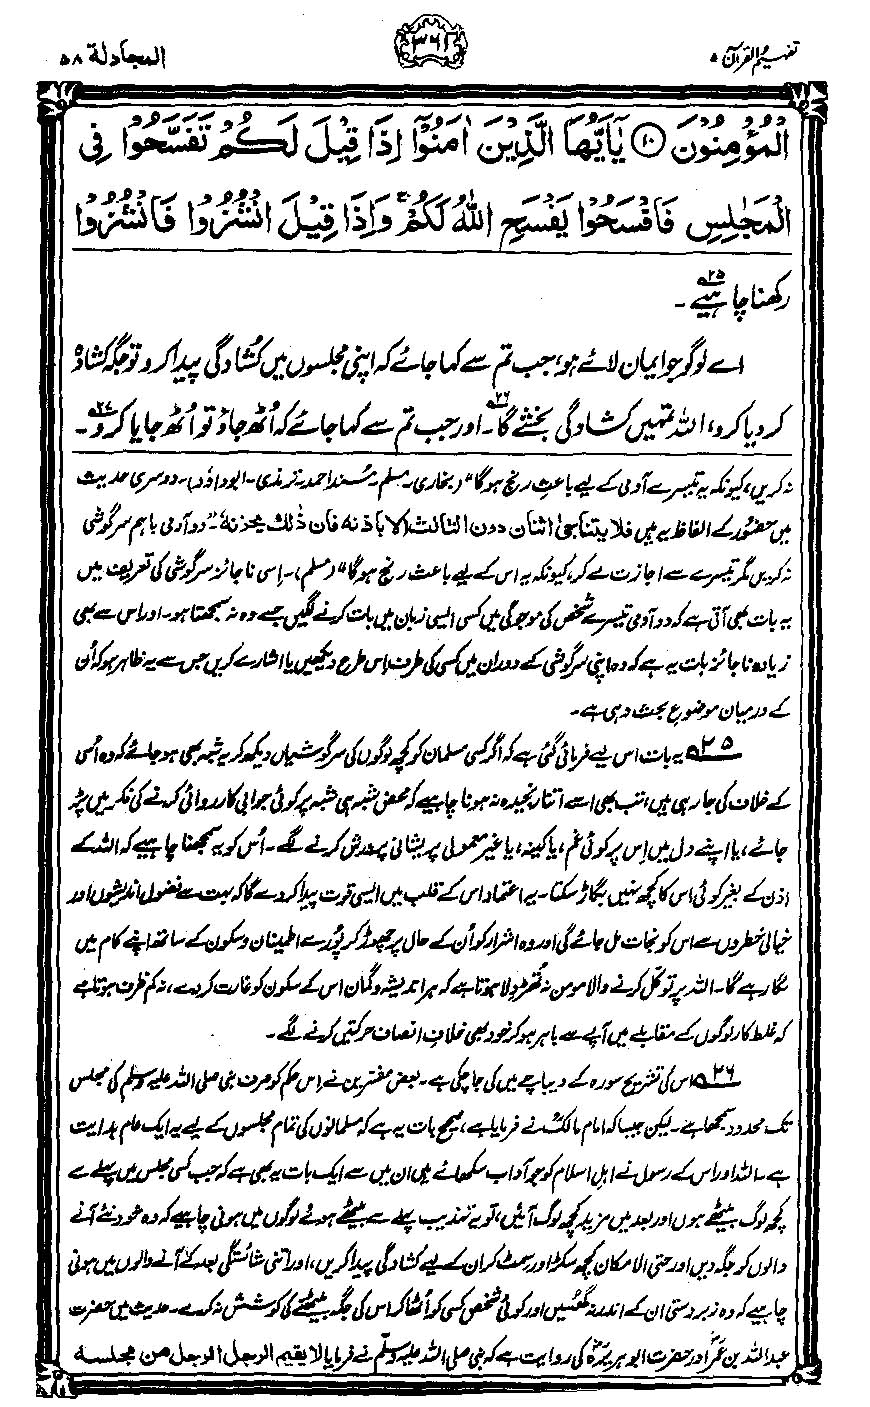 تفہیم القرآن ۵
۳۶۲
المجادلۃ ۵۸
الْمُؤْمِنُوْنَ ۝۱۰ یٰۤاَیُّهَا الَّذِیْنَ اٰمَنُوْۤا اِذَا قِیْلَ لَكُمْ تَفَسَّحُوْا فِی
الْمَجٰلِسِ فَافْسَحُوْا یَفْسَحِ اللّٰهُ لَكُمْ ۚ وَاِذَا قِیْلَ انْشُزُوْا فَانْشُزُوْا
رکھنا چاہیے ۲۵۔
اے لوگو جو ایمان لائے ہو، جب تم سے کہا جائے کہ اپنی مجلسوں میں کشادگی پیدا کرو تو جگہ کشادہ
کر دیا کرو، اللہ تمہیں کشادگی بخشے گا ۲۶۔ اور جب تم سے کہا جائے کہ اُٹھ جاؤ تو اُٹھ جایا کرو ۲۷۔
نہ کریں، کیونکہ یہ تیسرے آدمی کے لیے باعثِ رنج ہوگا" (بخاری۔ مسلم۔ مُسند احمد۔ ترمذی۔ ابوداؤد)۔ دوسری حدیث
میں حضورؐ کے الفاظ یہ ہیں فلا یتناجیٰ اثنان دون الثالث الا باذنہ فان ذٰلک یحزنہ۔ "دو آدمی باہم سرگوشی
نہ کریں مگر تیسرے سے اجازت لے کر، کیونکہ یہ اس کے لیے باعث رنج ہوگا" (مسلم)۔ اِسی ناجائز سرگوشی کی تعریف میں
یہ بات بھی آتی ہے کہ دو آدمی تیسرے شخص کی موجودگی میں کسی ایسی زبان میں بات کرنے لگیں جسے وہ نہ سمجھتا ہو۔ اور اس سے بھی
زیادہ ناجائز بات یہ ہے کہ وہ اپنی سرگوشی کے دوران میں کسی کی طرف اِس طرح دیکھیں یا اشارے کریں جس سے یہ ظاہر ہو کہ اُن
کے درمیان موضوعِ بحث وہی ہے۔
۲۵ یہ بات اس لیے فرمائی گئی ہے کہ اگر کسی مسلمان کو کچھ لوگوں کی سرگوشیاں دیکھ کر یہ شبہ بھی ہو جائے کہ وہ اُسی
کے خلاف کی جا رہی ہیں، تب بھی اسے اتنا رنجیدہ نہ ہونا چاہیے کہ محض شبہ ہی شبہ پر کوئی جوابی کارروائی کرنے کی فکر میں پڑ
جائے، یا اپنے دل میں اِس پر کوئی غم، یا کینہ، یا غیر معمولی پریشانی پرورش کرنے لگے۔ اُس کو یہ سمجھنا چاہیے کہ اللہ کے
اذن کے بغیر کوئی اس کا کچھ نہیں بگاڑ سکتا۔ یہ اعتماد اس کے قلب میں ایسی قوت پیدا کر دے گا کہ بہت سے فضول اندیشوں اور
خیالی خطروں سے اس کو نجات مل جائے گی اور وہ اشرار کو اُن کے حال پر چھوڑ کر پُورے اطمینان و سکون کے ساتھ اپنے کام میں
لگا رہے گا۔ اللہ پر توکل کرنے والا مومن نہ تھُڑدلا ہوتا ہے کہ ہر اندیشہ و گمان اس کے سکون کو غارت کر دے، نہ کم ظرف ہوتا ہے
کہ غلط کار لوگوں کے مقابلے میں آپے سے باہر ہو کر خود بھی خلافِ انصاف حرکتیں کرنے لگے۔
۲۶ اس کی تشریح سورہ کے دیباچے میں کی جا چکی ہے۔ بعض مفسّرین نے اِس حکم کو صرف نبی صلی اللہ علیہ وسلم کی مجلس
تک محدود سمجھا ہے۔ لیکن جیسا کہ امام مالکؒ نے فرمایا ہے، صحیح بات یہ ہے کہ مسلمانوں کی تمام مجلسوں کے لیے یہ ایک عام ہدایت
ہے۔ اللہ اور اس کے رسول نے اہلِ اسلام کو جو آداب سکھائے ہیں ان میں سے ایک بات یہ بھی ہے کہ جب کسی مجلس میں پہلے سے
کچھ لوگ بیٹھے ہوں اور بعد میں مزید کچھ لوگ آئیں، تو یہ تہذیب پہلے سے بیٹھے ہوئے لوگوں میں ہونی چاہیے کہ وہ خود نئے آنے
والوں کو جگہ دیں اور حتی الامکان کچھ سکڑ اور سمٹ کر ان کے لیے کشادگی پیدا کریں، اور اتنی شائستگی بعد کے آنے والوں میں ہونی
چاہیے کہ وہ زبردستی ان کے اندر نہ گھسیں اور کوئی شخص کسی کو اُٹھا کر اس کی جگہ بیٹھنے کی کوشش نہ کرے۔ حدیث میں حضرت
عبداللہ بن عمرؓ اور حضرت ابوہریرہؓ کی روایت ہے کہ نبی صلی اللہ علیہ وسلم نے فرمایا لا یقیم الرجل الرجل من مجلسہ